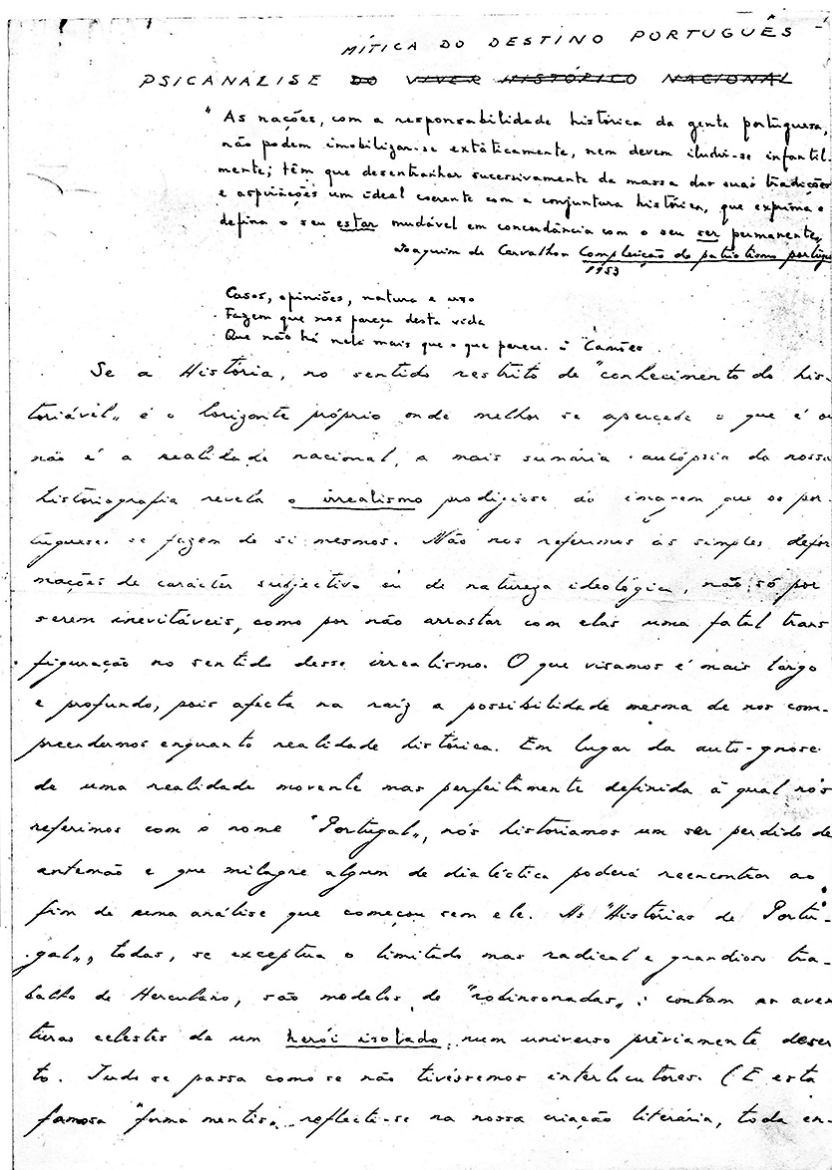 MÍTICA DO DESTINO PORTUGUÊS
PSICANALISE DO VIVER HISTÓRICO NACIONAL
"As nações, com a responsabilidade histórica da gente portuguesa,
não podem imobilizar-se extàticamente, nem devem iludir-se infantil-
mente; têm que desentranhar sucessivamente da massa das suas tradições
e aspirações um ideal coerente com a conjuntura histórica, que exprima e
defina o seu estar mudável em concordância com o seu ser permanente„
Joaquim de Carvalho Compleição do patriotismo portugu
1953
Casos, opiniões, natura e uso
Fazem que nos pareça desta vida
Que não há nela mais que o que parece. - Camões
Se a História, no sentido restrito de "conhecimento do his-
toriável„ é o horizonte próprio onde melhor se apercebe o que é ou
não é a realidade nacional, a mais sumária autópsia da nossa
historiografia revela o irrealismo prodigioso da imagem que os por-
tugueses se fazem de si mesmos. Não nos referimos às simples defor
mações de carácter subjectivo ou de natureza ideológica, não só por
serem inevitáveis, como por não arrastar com elas uma fatal trans
figuração no sentido desse irrealismo. O que visamos é mais largo
e profundo, pois afecta na raíz a possibilidade mesma de nos com-
preendermos enquanto realidade histórica. Em lugar da auto-gnose
de uma realidade movente mas perfeitamente definida à qual nós
referimos com o nome "Portugal„, nós historiamos um ser perdido de
antemão e que milagre algum de dialéctica poderá reencontrar ao
fim de uma análise que começou sem ele. As "Histórias de Portu-
gal„, todas, se exceptua o limitado mas radical e grandioso tra-
balho de Herculano, são modelos de "robinsonadas„: contam as aven
turas celestes de um herói isolado, num universo prèviamente deser
to. Tudo se passa como se não tivéssemos interlocutores. (E esta
famosa "forma mentis„ reflecte-se na nossa criação literária, toda en-